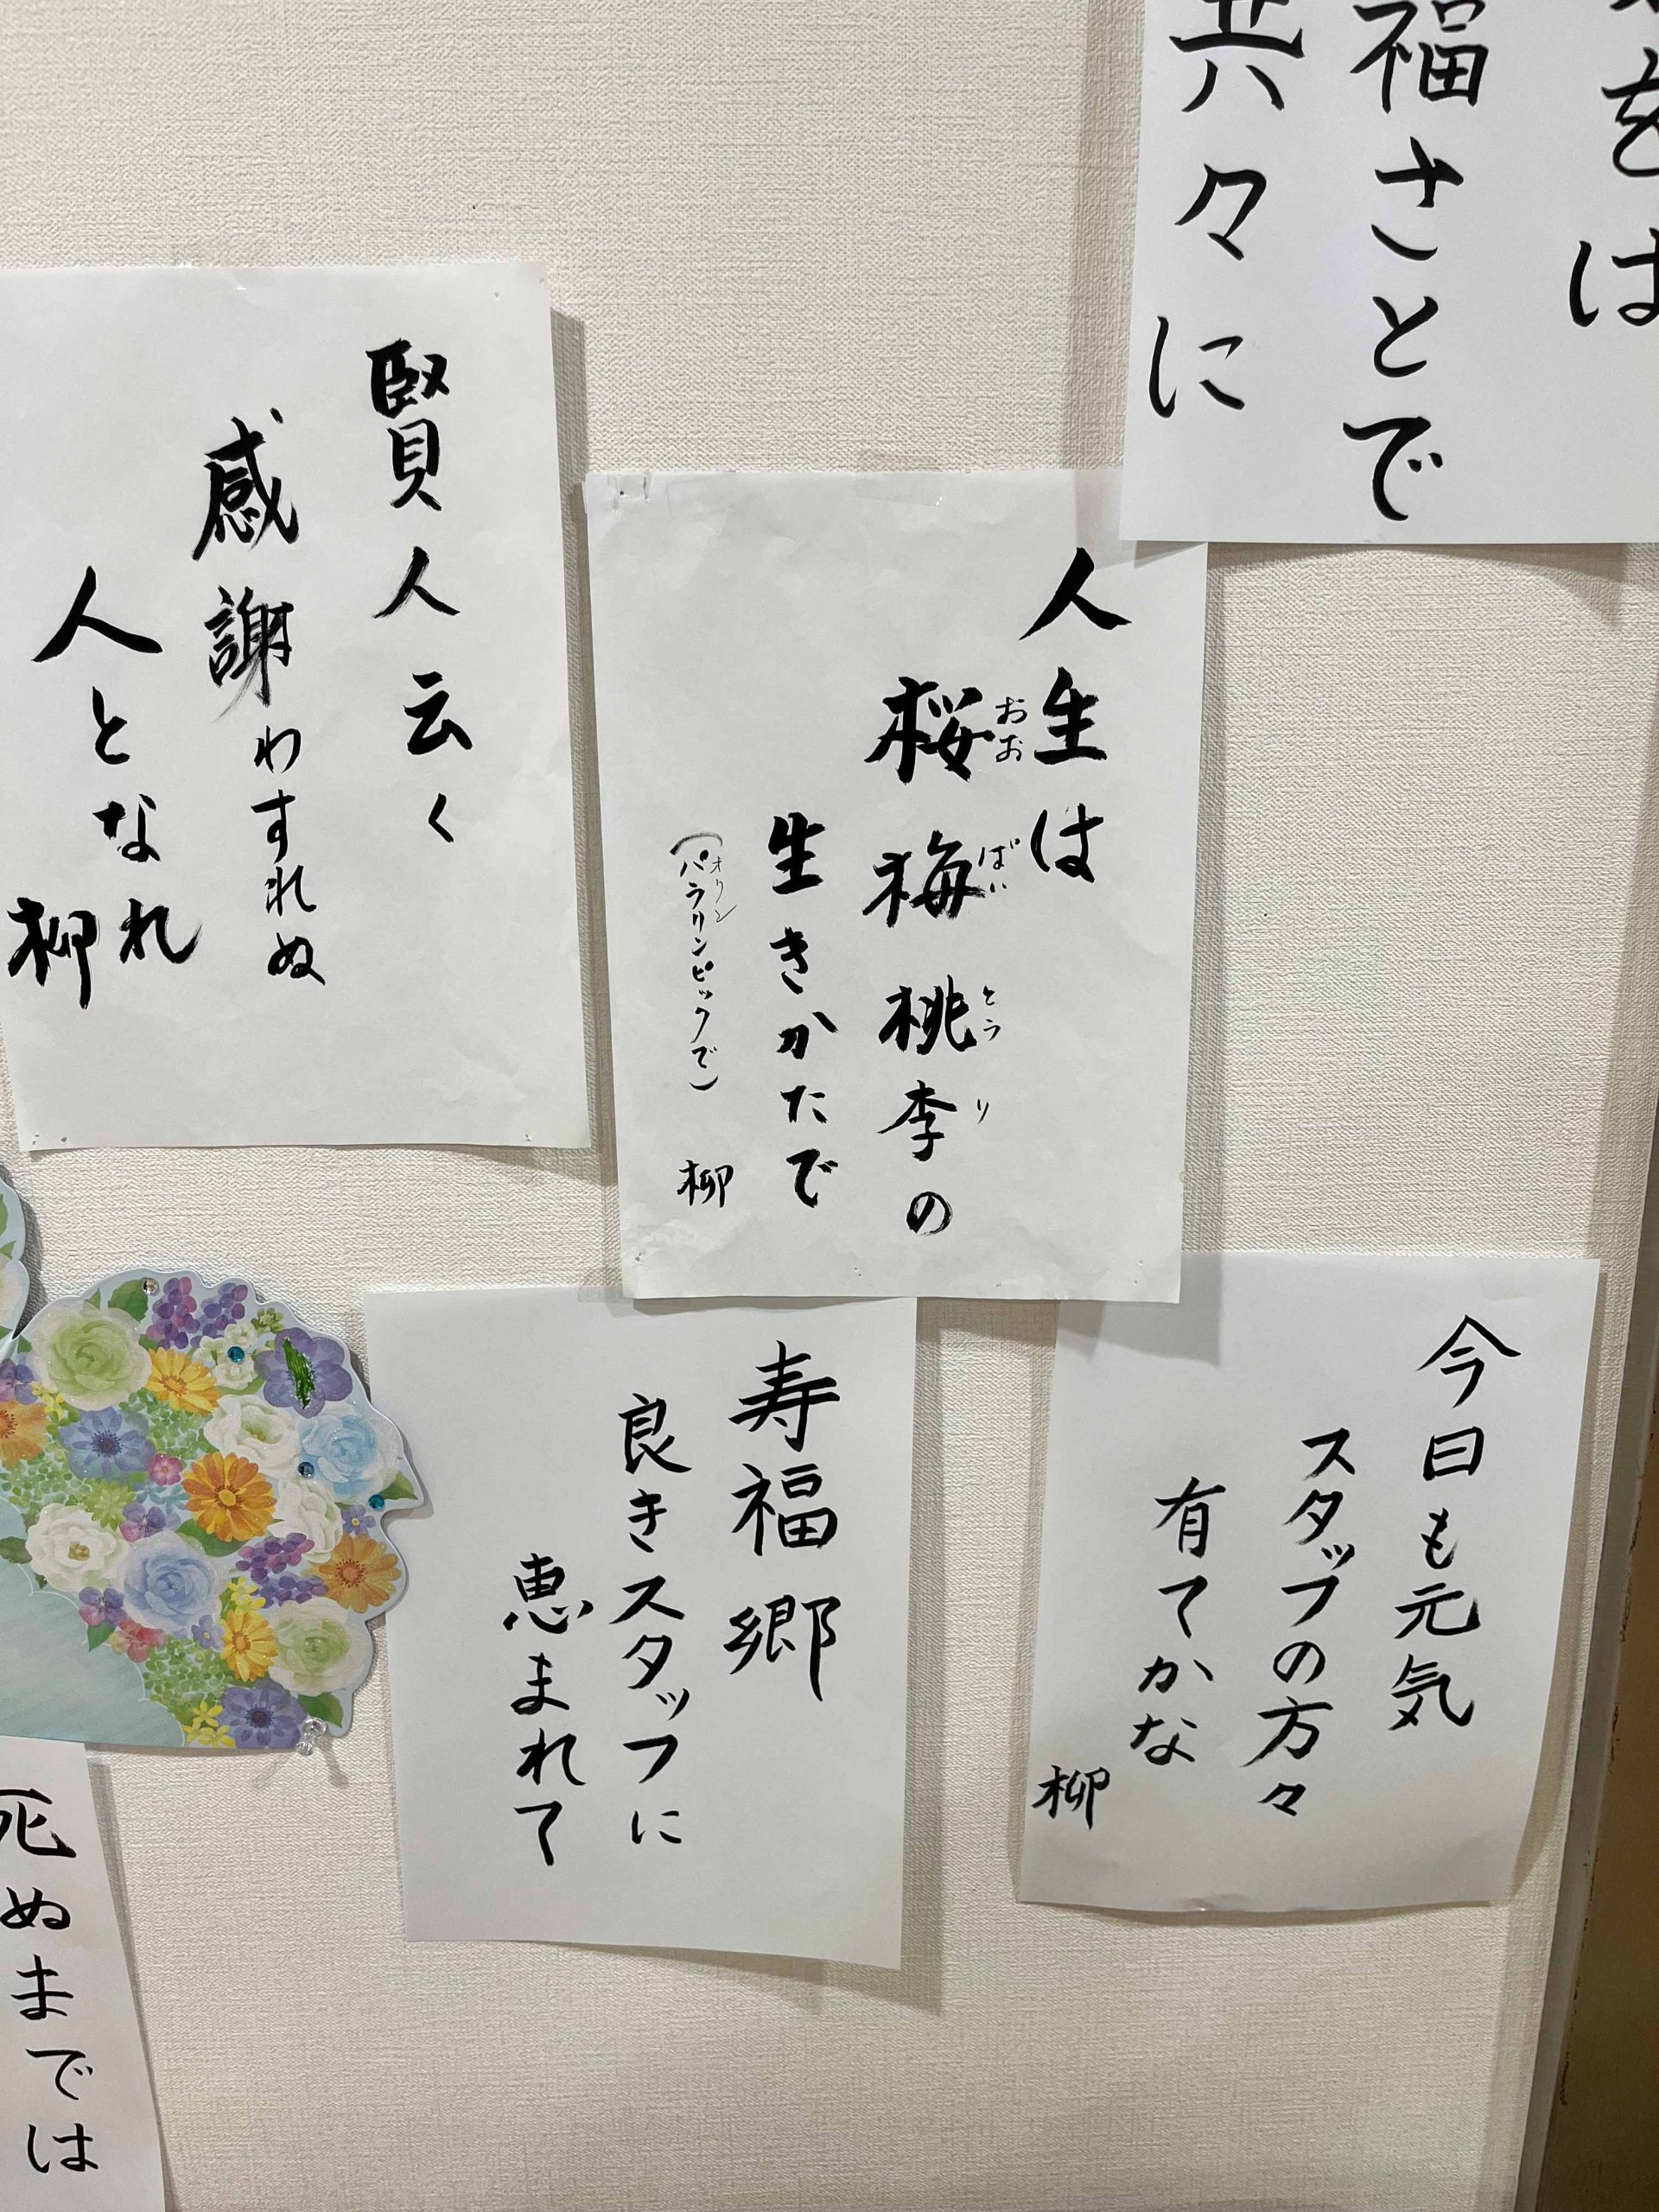 をは
福さとで
共々に
賢人云く
感謝わすれぬ
人となれ
柳
人生は
桜梅桃李の
おお ばい とう り
生きかたで
(パラリンピックで)
オリン
柳
寿福郷
良きスタッフに
恵まれて
今日も元気
スタッフの方々
有てかな
柳
死ぬまでは